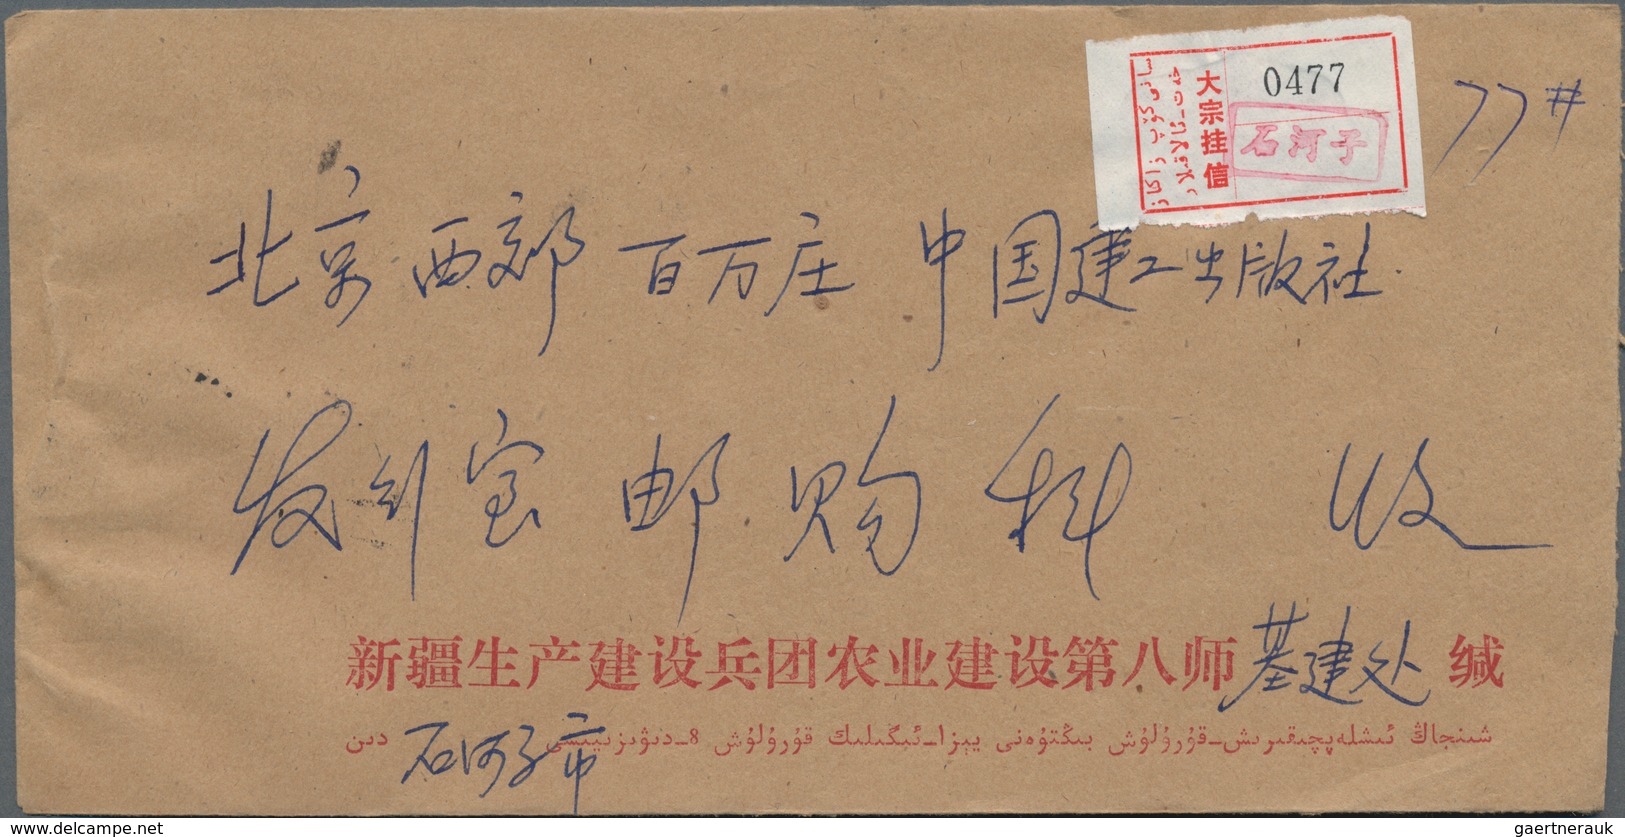 0477
大宗挂信
石河子
77#
北京西郊百万庄中国建工出版社
发行室邮购科 收
新疆生产建设兵团农业建设第八师基建处缄
شىنجاڭ ئىشلەپچىقىرىش-قۇرۇلۇش بىڭتۇەنى يېزا-ئىگىلىك قۇرۇلۇش 8-دىۋىزىيىسى دىن
石河子市
www.delcampe.net
gaertnerauk